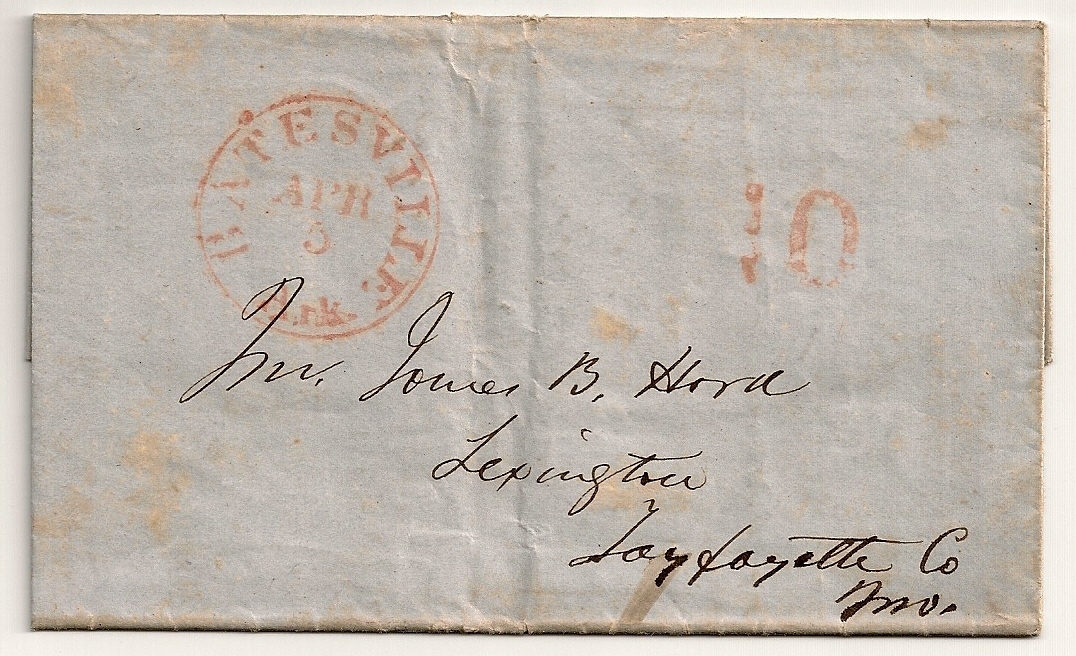 BATESVILLE
APR
5
Ark.
10
Mr. James B. Hord
Lexington
Layfayette Co
Mo.